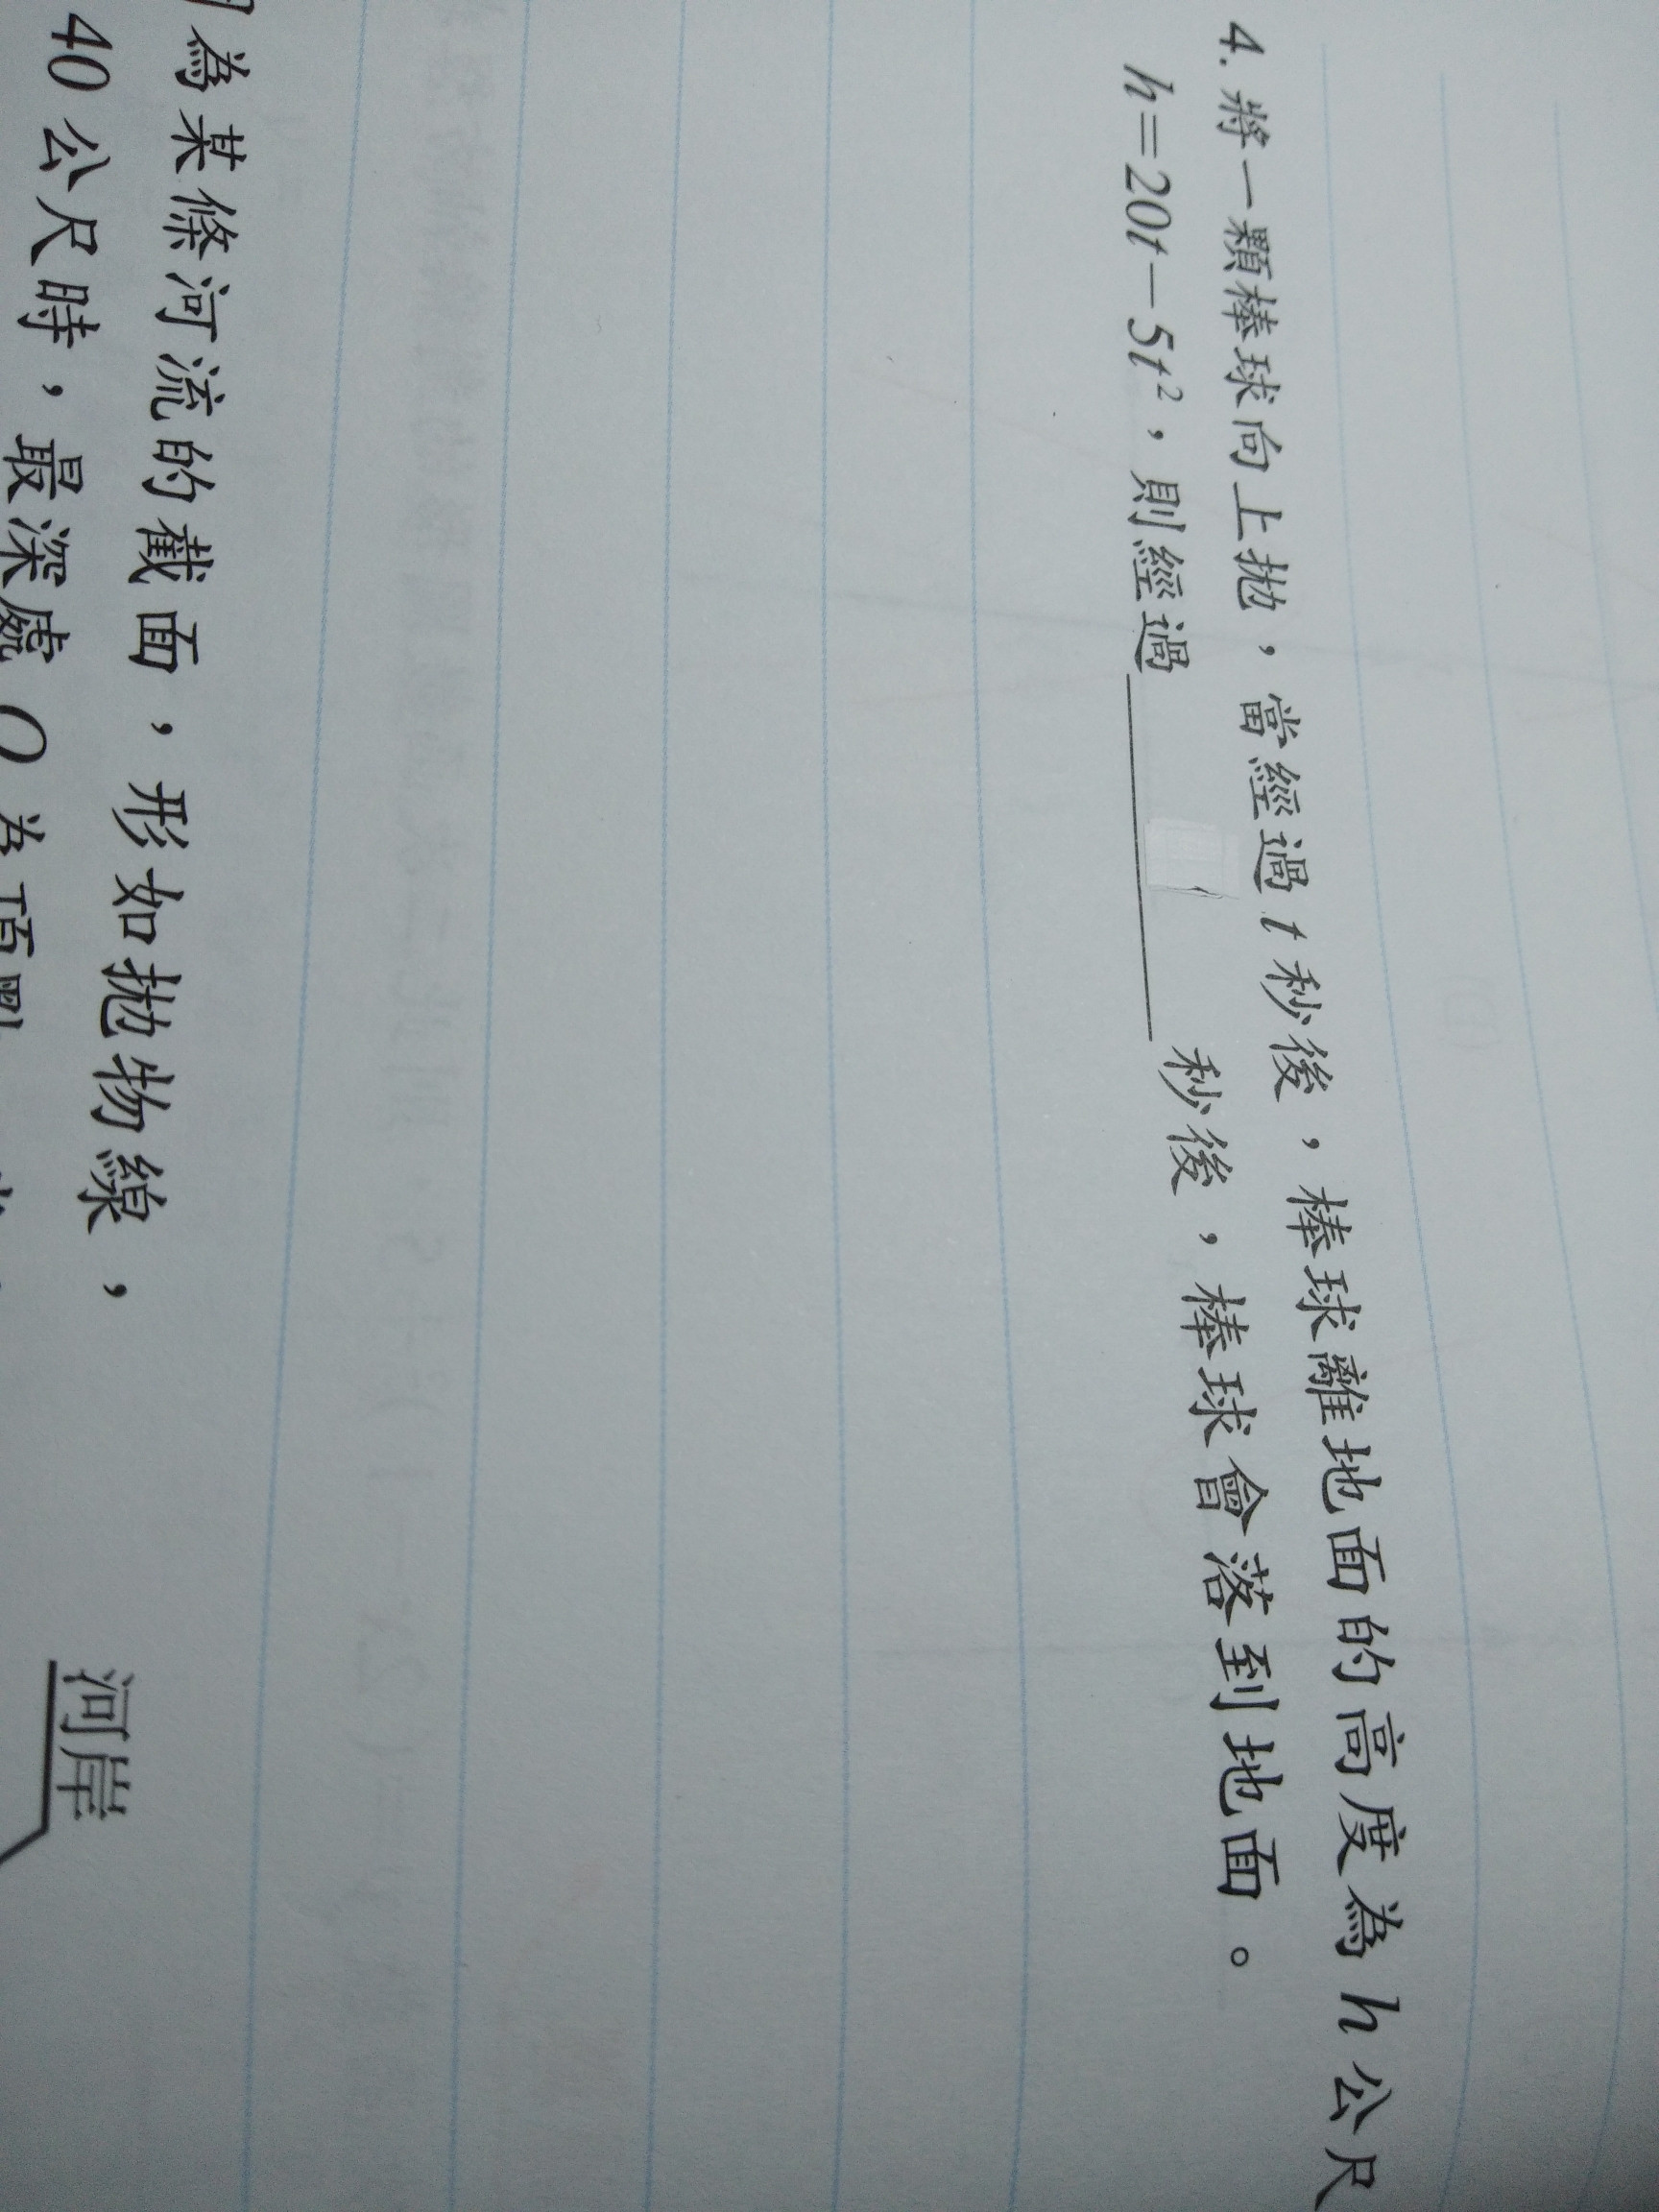 4. 將一顆棒球向上拋，當經過 t 秒後，棒球離地面的高度為 h 公尺
h=20t－5t²，則經過 秒後，棒球會落到地面。
為某條河流的截面，形如拋物線，
40 公尺時，最深處 O 為頂點
河岸